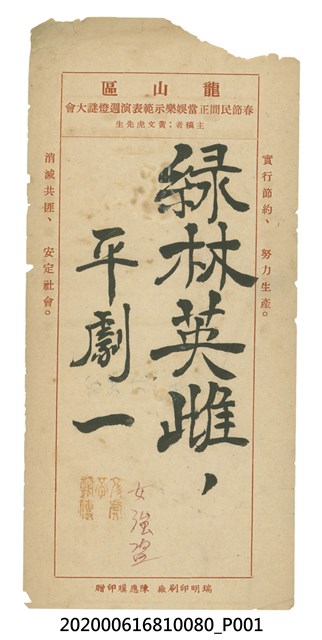 龍山區
春節民間正當娛樂示範表演週燈謎大會
主稿者：黃文虎先生
實行節約、努力生產。
綠林英雌，
平劇一
女強盜
消滅共匪、安定社會。
瑞明印刷廠 陳應璞印贈
202000616810080_P001